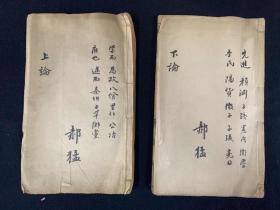 學而 為政 八佾 里仁 公冶
雍也 述而 泰伯 子罕 鄉黨
郝猛
上論
先進 顏淵 子路 憲問 衛靈
季氏 陽貨 微子 子張 堯曰
郝猛
下論